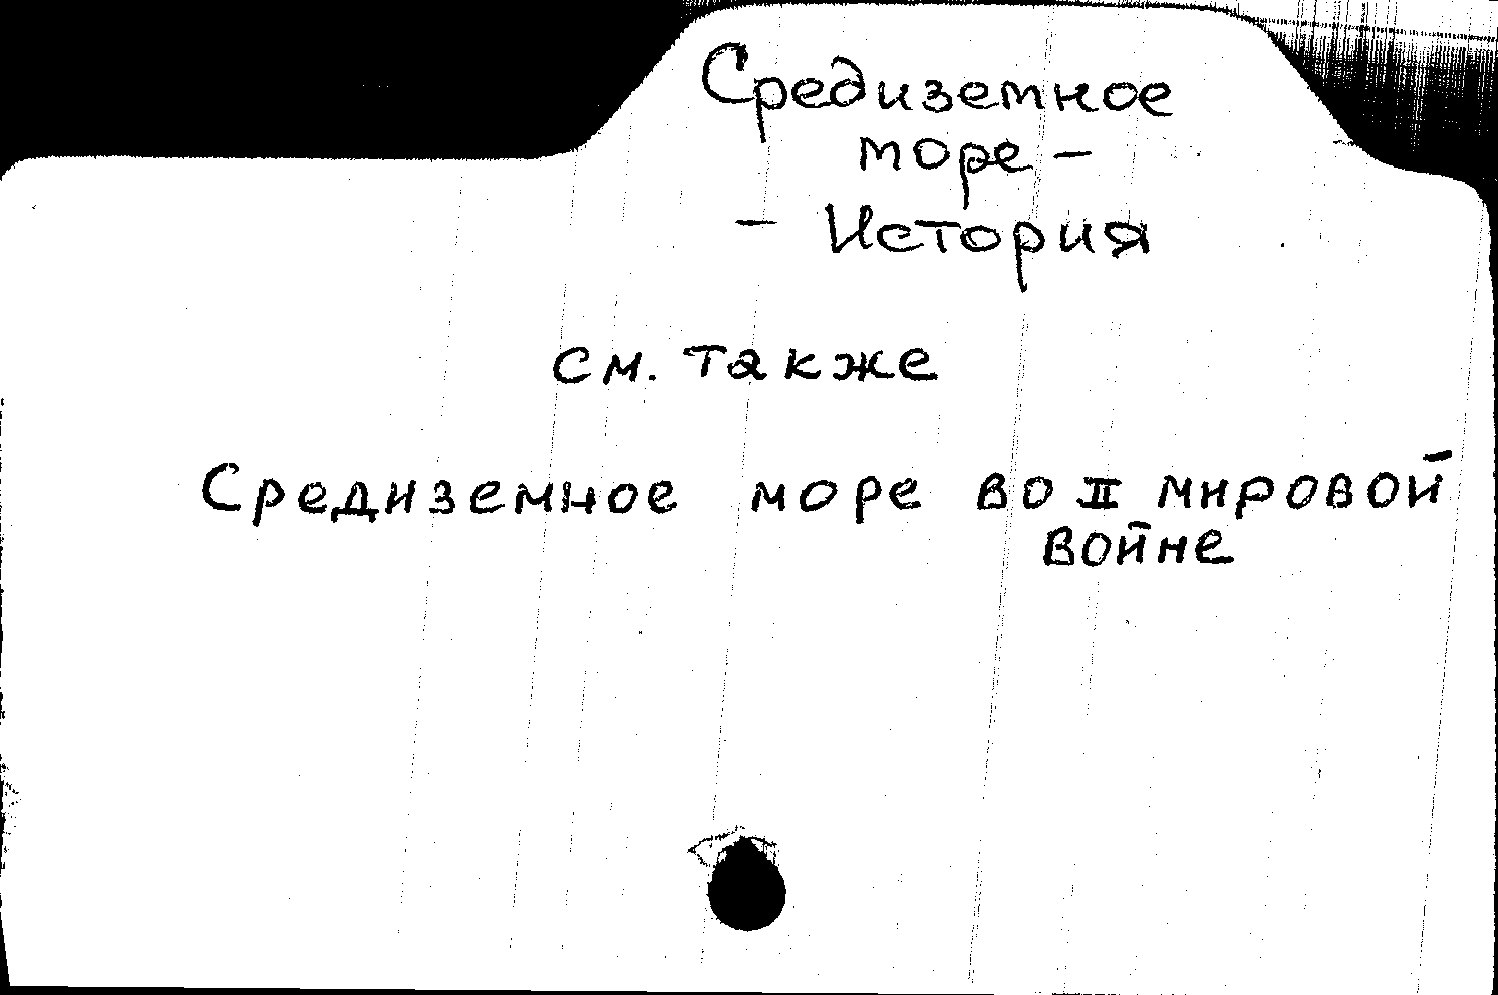 Средиземное
море –
– История
см. также
Средиземное море во II мировой
войне